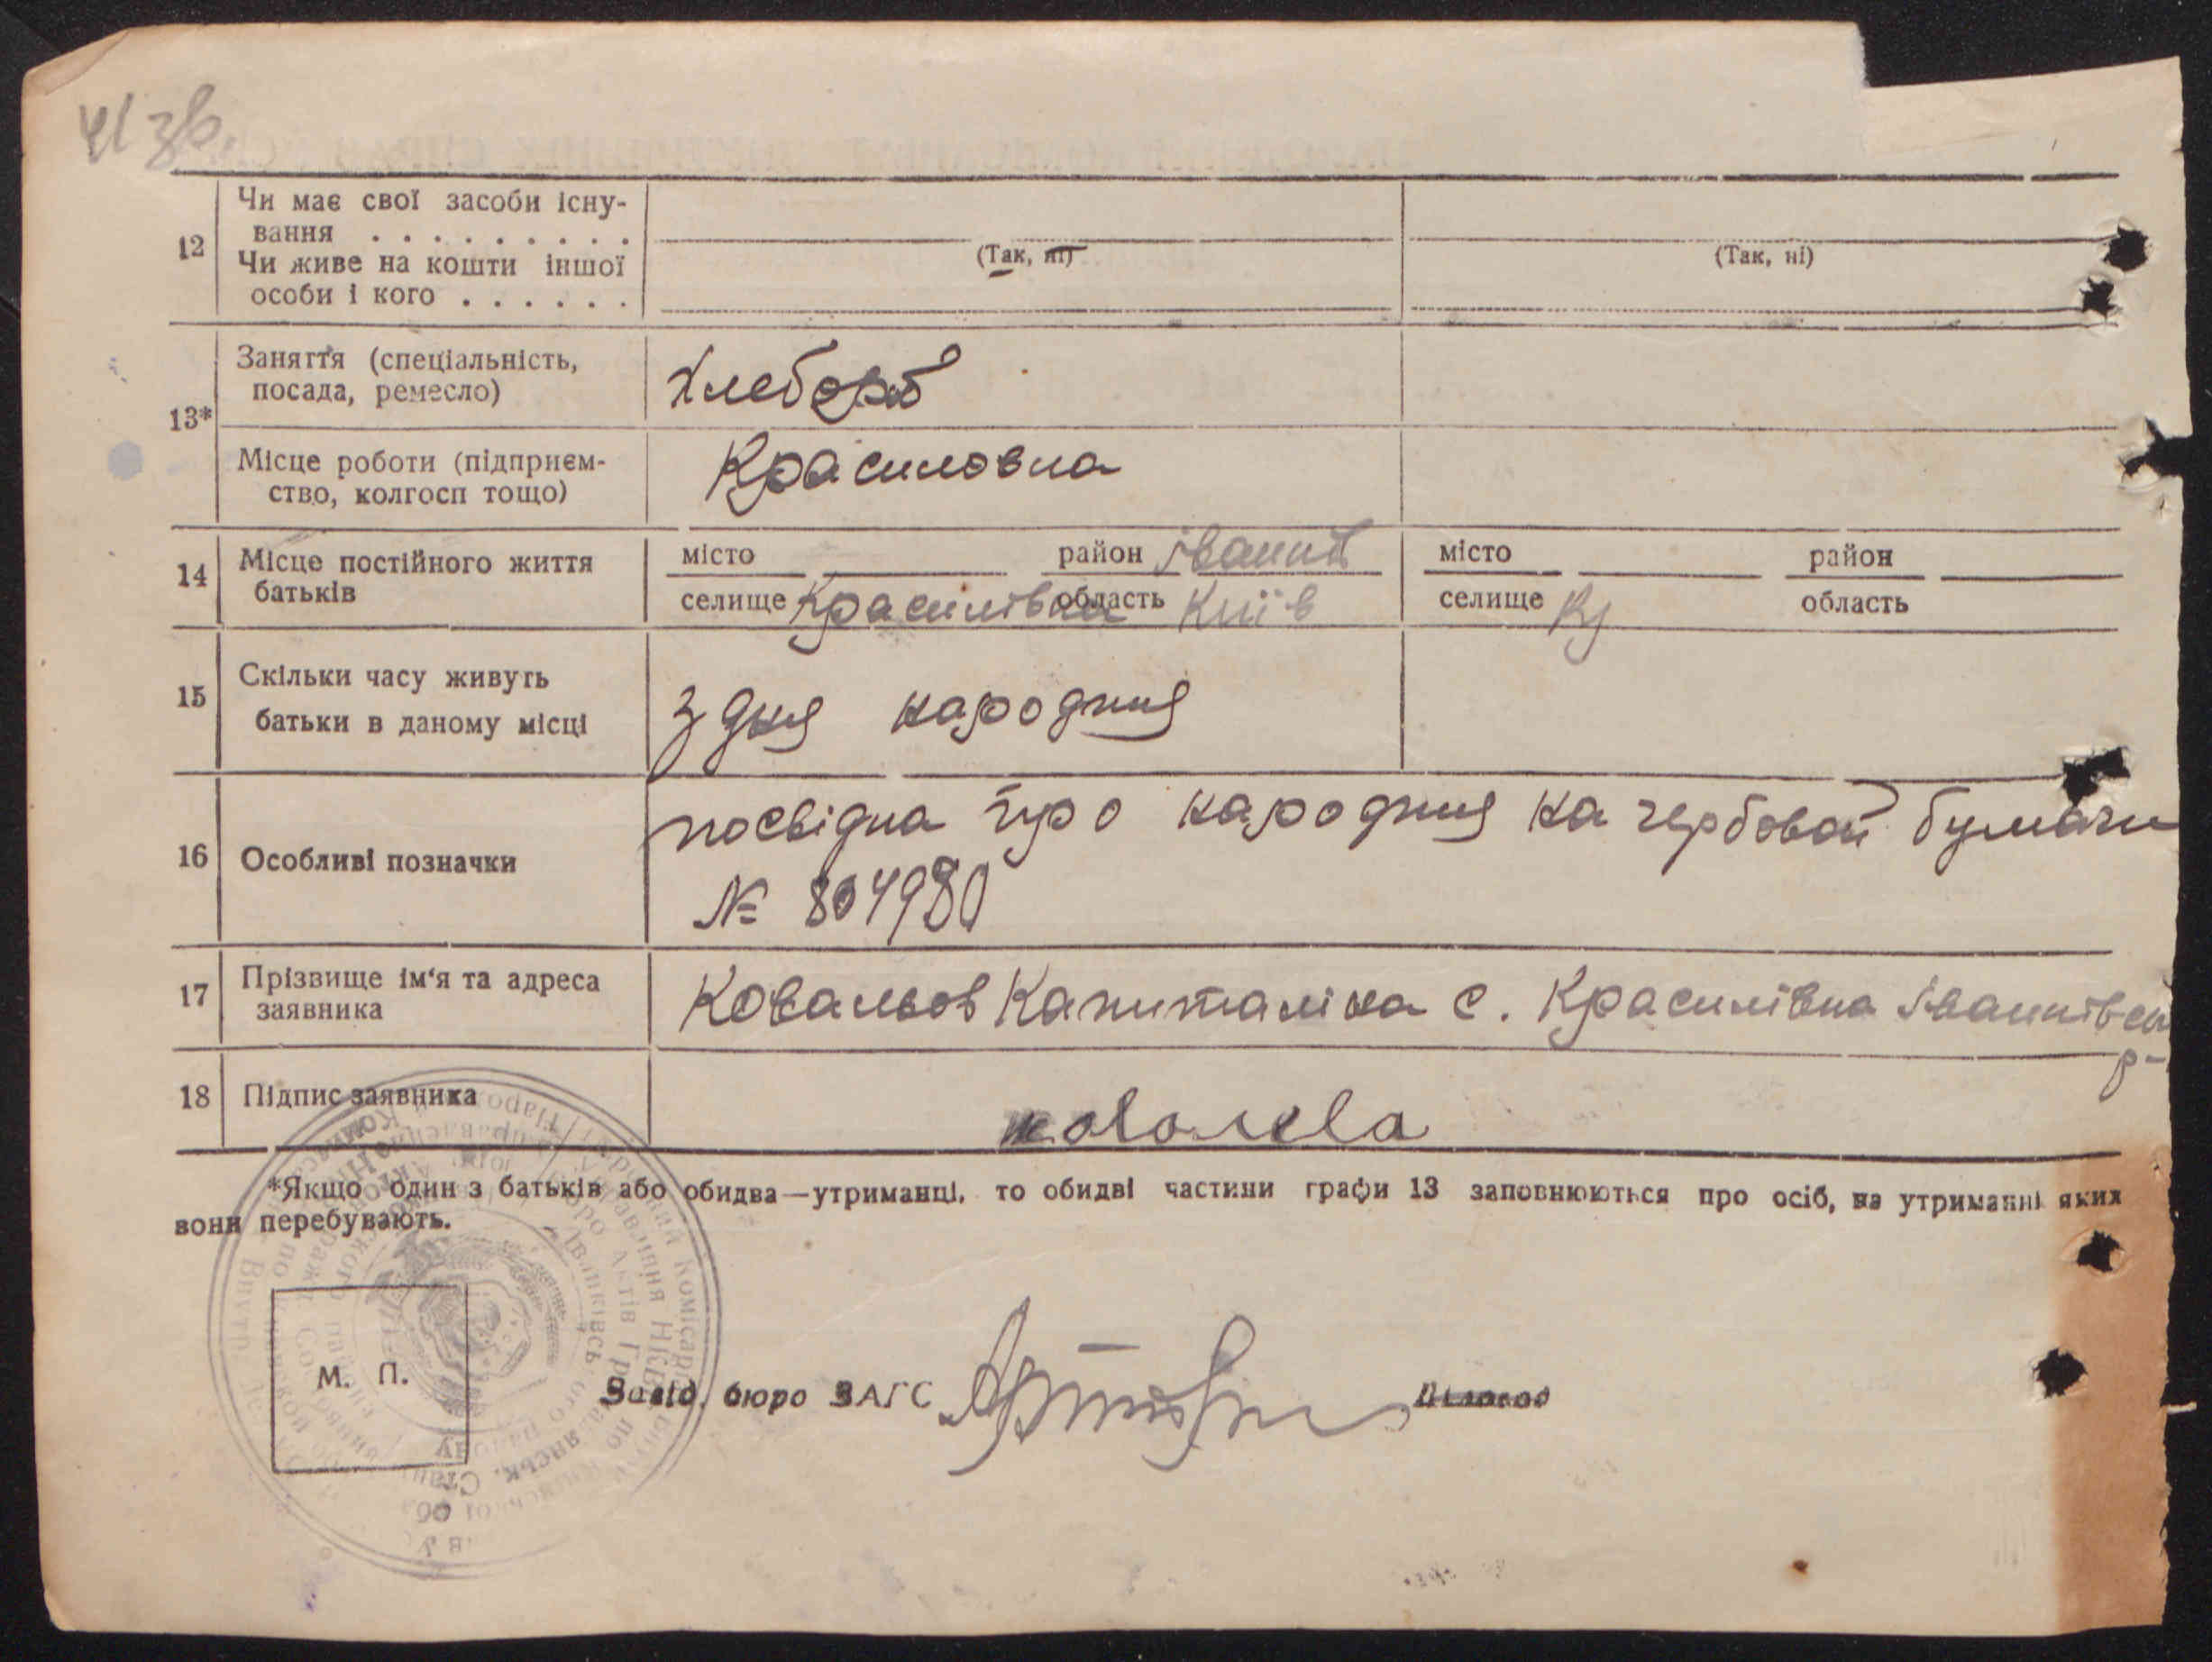 41 зв.
12 Чи має свої засоби існу-
вання . . . . . . . . .
Чи живе на кошти іншої
особи і кого . . . . . .
(Так, ні) (Так, ні)
13* Заняття (спеціальність,
посада, ремесло) Хлебороб
Місце роботи (підприєм-
ство, колгосп тощо) Красиловка
14 Місце постійного життя
батьків
місто район Іванків місто район
селище Красилівка область Київ селище Кр область
15 Скільки часу живуть
батьки в даному місці з дня народння
16 Особливі позначки посвідка про народння на гербовой бумаги
№ 804980
17 Прізвище ім'я та адреса
заявника Ковальов Капиталіна с. Красилівка Іванківськ
р-
18 Підпис заявника Ковалева
*Якщо один з батьків або обидва—утриманці, то обидві частини графи 13 заповнюються про осіб, на утриманні яких
вони перебувають.
М. П.
Завід. бюро ЗАГС